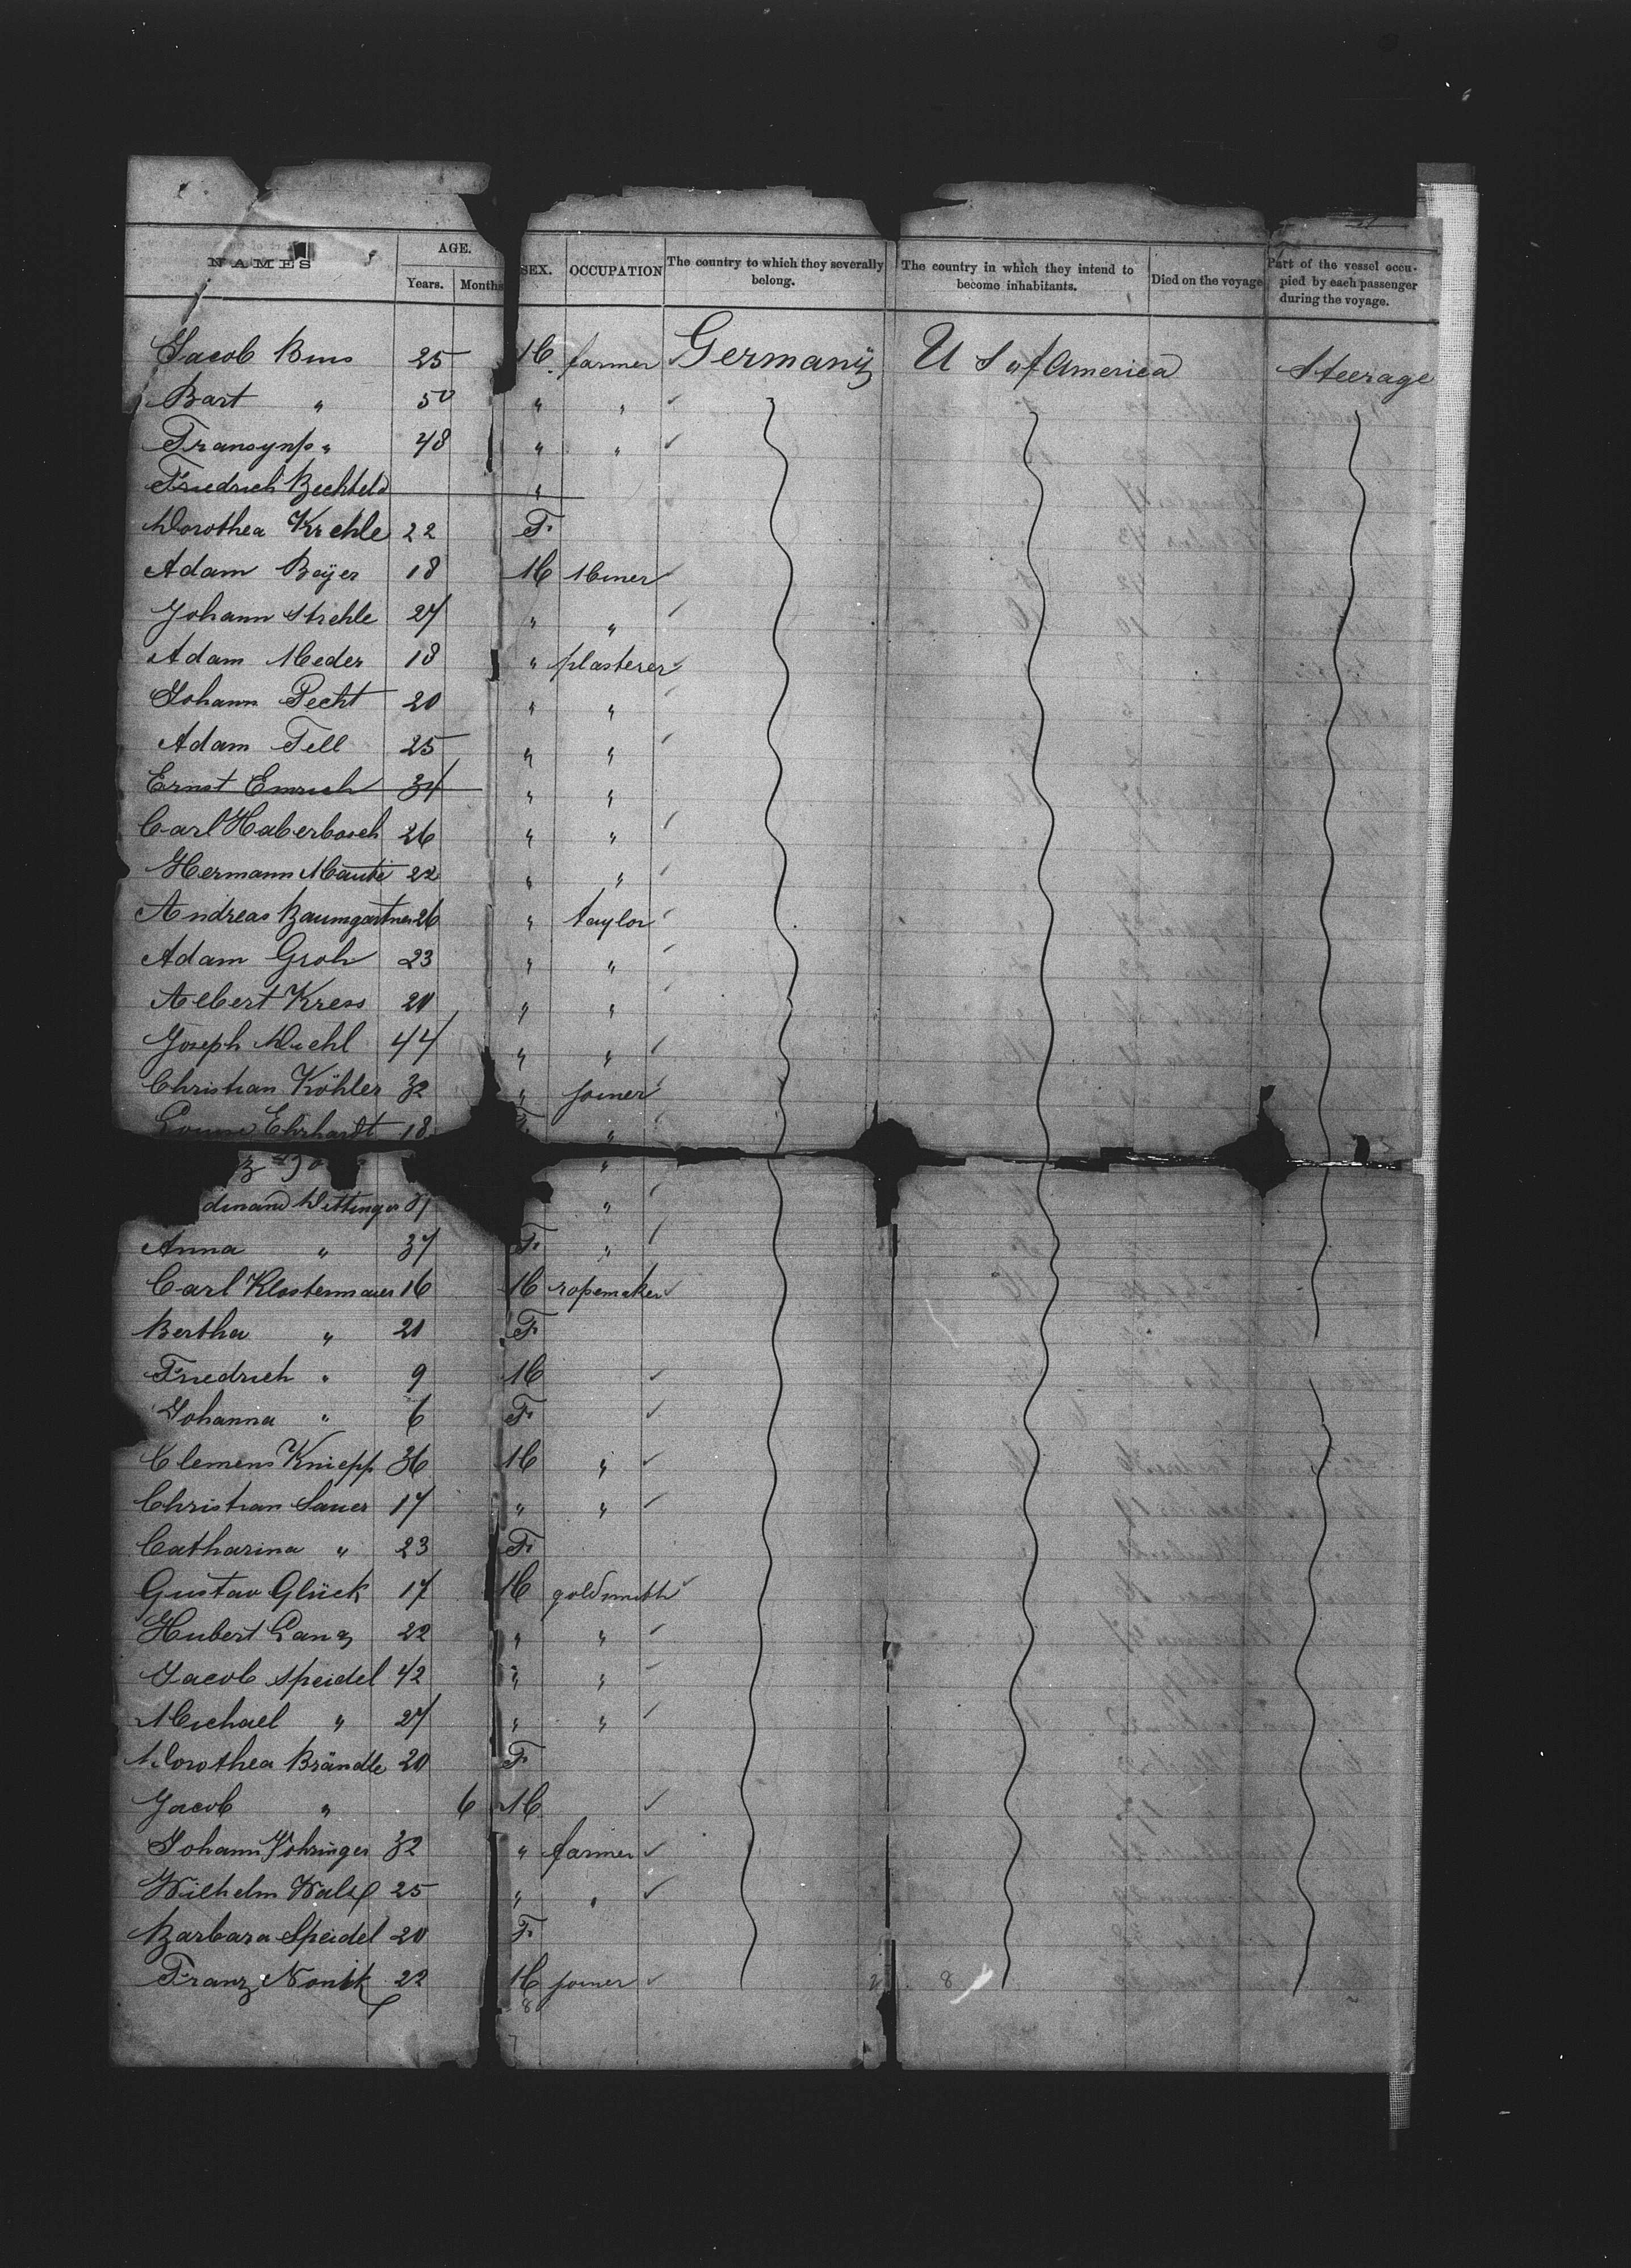 NAMES AGE. SEX. OCCUPATION The country to which they severally belong. The country in which they intend to become inhabitants. Died on the voyage Part of the vessel occupied by each passenger during the voyage.
Years. Months
Jacob Bins 25 M. farmer Germany U S of America Steerage
Bart " 50 " "
" 48 " "
Friedrich Bechteld "
Dorothea Krehle 22 F.
Adam Beyer 18 M Miner
Johann Strehle 27 " "
Adam Meder 18 " plasterer
Johann Pecht 20 " "
Adam Tell 25 " "
Ernst Emrich 34 " "
Carl Haberbosch 26 " "
Hermann Maute 22 " "
Andreas Baumgartner 26 " taylor
Adam Groh 23 " "
Albert Kress 20 " "
Joseph Diehl 44 " "
Christian Köhler 32 " joiner
Louise Ehrhardt 18 F. "
"
dinand Dettinger "
Anna " 37 F. "
Carl Klostermaier 16 M ropemaker
Bertha " 20 F.
Friedrich " 9 M
Johanna " 6 F.
Clemens Kniepp 36 M "
Christian Sauer 17 " "
Catharina " 23 F.
Gustav Glück 17 M goldsmith
Hubert Lang 22 " "
Jacob Speidel 42 " "
Michael " 27 " "
Dorothea Brändle 20 F.
Jacob " 6 M
Johann Vöhringer 32 " farmer
Wilhelm Walz 25 " "
Barbara Speidel 20 F.
Franz 22 M joiner 8
8